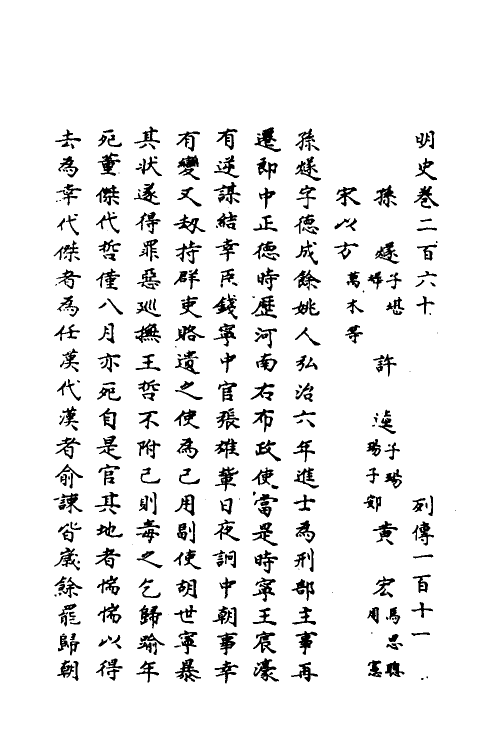 明史卷二百六十 列傳一百十一
孫燧子堪 墀 許逵子瑒 瑒子鄣 黄宏馬思聰 周憲
宋以方萬木等
孫燧字德成餘姚人弘治六年進士為刑部主事再
遷郎中正德時歷河南右布政使當是時寧王宸濠
有逆謀結幸臣錢寧中官張雄輩日夜詗中朝事幸
有變又刼持群吏賂遺之使為己用副使胡世寧暴
其状遂得罪惡巡撫王哲不附己則毒之乞歸踰年
死董傑代哲僅八月亦死自是官其地者惴惴以得
去為幸代傑者為任漢代漢者俞諫皆歲餘罷歸朝